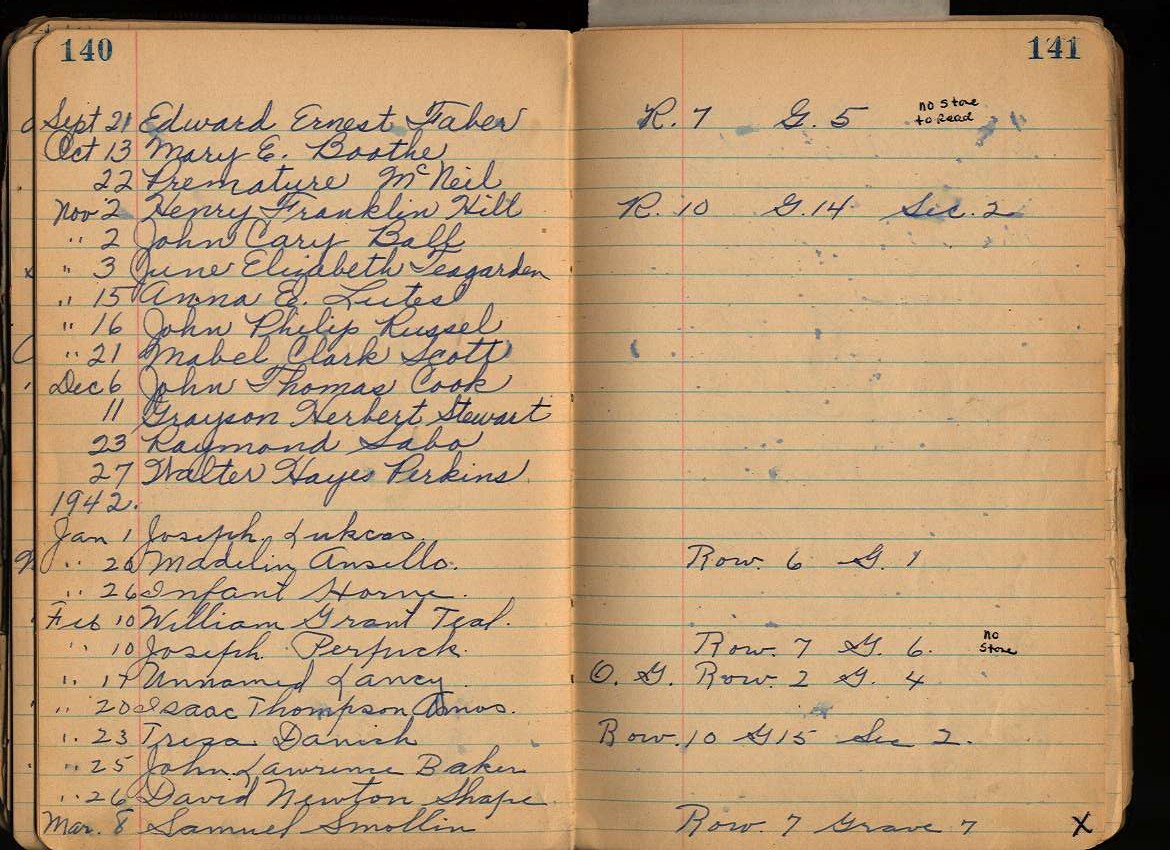 140
141
Sept 21 Edward Ernest Faber R. 7 G. 5 no stone to read
Oct 13 Mary E. Boothe
22 Premature McNeil
Nov 2 Henry Franklin Hill R. 10 G. 14 Sec. 2
" 2 John Cary Ball
x " 3 June Elizabeth Teagarden
" 15 Anna E. Lutes
" 16 John Philip Russel
" 21 Mabel Clark Scott
Dec 6 John Thomas Cook
11 Grayson Herbert Stewart
23 Raymond Sabo
27 Walter Hayes Perkins
1942.
Jan 1 Joseph Lukcas
" 20 Madelin Ansello. Row. 6 G. 1
" 26 Infant Horne.
Feb 10 William Grant Teal.
" 10 Joseph Perpuck. Row. 7 G. 6. no stone
" 17 Unnamed Lancy. O. G. Row. 2 G. 4
" 20 Isaac Thompson Amos.
" 23 Treza Danich Row. 10 G15 Sec 2.
" 25 John Lawrence Baker
" 26 David Newton Shape
Mar. 8 Samuel Smollin Row. 7 Grave 7 X